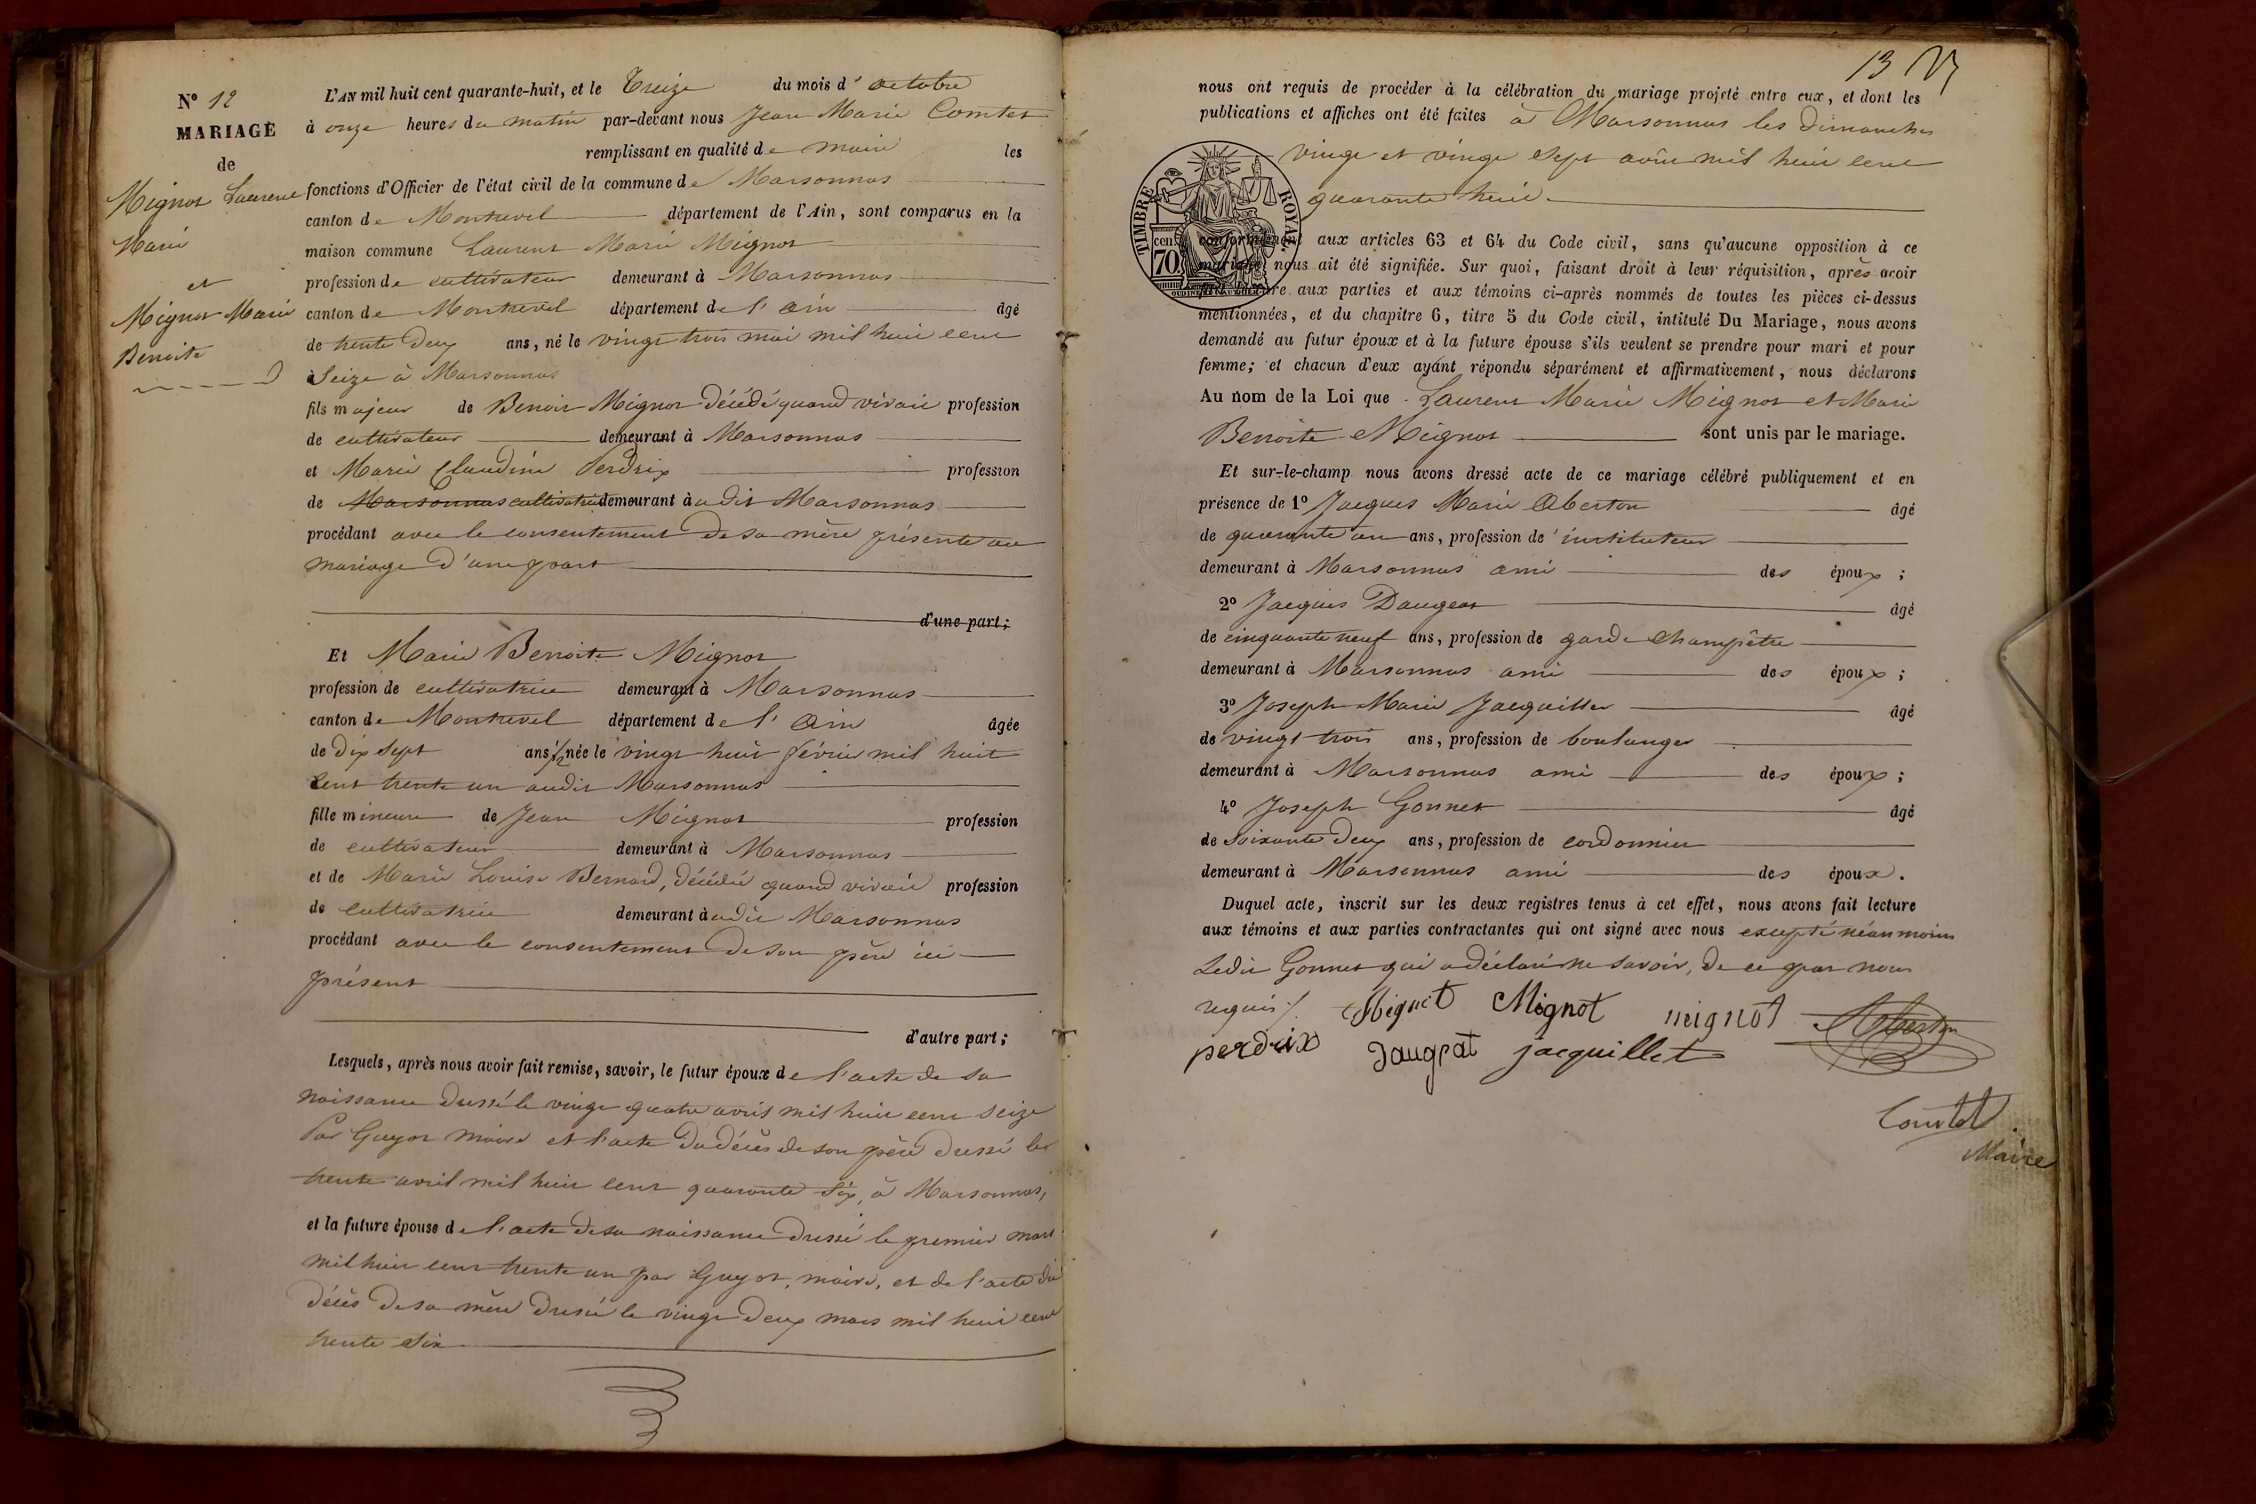 N.º 12
MARIAGE
de
Mignot Laurent
Marie
et
Mignot Marie
Benoite
L'AN mil huit cent quarante-huit, et le Treize du mois d' octobre
à onze heures du matin par-devant nous Jean Marie Comtet
remplissant en qualité de maire les
fonctions d'Officier de l'état civil de la commune de Marsonnas
canton de Montrevel département de l'Ain, sont comparus en la
maison commune Laurent Marie Mignot
profession de cultivateur demeurant à Marsonnas
canton de Montrevel département de l' ain âgé
de trente deux ans, né le vingt trois mai mil huit cent
Seize à Marsonnas
fils majeur de Benoit Mignot décédé quand vivait profession
de cultivateur demeurant à Marsonnas
et Marie Claudine Perdrix profession
de Marsonnas cultivatrice demeurant à udit Marsonnas
procédant avec le consentement de sa mère présente au
mariage d'une part
d'une part;
Et Marie Benoite Mignot
profession de cultivatrice demeurant à Marsonnas
canton de Montrevel département de l' Ain âgée
de dix sept ans 1/2 née le vingt huit février mil huit
cent trente un audit Marsonnas
fille mineure de Jean Mignot profession
de cultivateur demeurant à Marsonnas
et de Marie Louise Bernard, décédée quand vivait profession
de cultivatrice demeurant à udit Marsonnas
procédant avec le consentement de son père ici
présent
d'autre part;
Lesquels, après nous avoir fait remise, savoir, le futur époux de l'acte de sa
naissance dressé le vingt quatre avril mil huit cent seize
Par Guyot maire et l'acte du décès de son père dressé le
trente avril mil huit cent quarante six, à Marsonnas,
et la future épouse de l'acte de sa naissance dressé le premier mars
mil huit cent trente un par Guyot, maire, et de l'acte du
décès de sa mère dressé le vingt deux mars mil huit cent
trente six
13
nous ont requis de procéder à la célébration du mariage projeté entre eux, et dont les
publications et affiches ont été faites à Marsonnas les dimanches
vingt et vingt sept août mil huit cent
quarante huit
TIMBRE ROYAL
cen.
70
conformément aux articles 63 et 64 du Code civil, sans qu'aucune opposition à ce
mariage nous ait été signifiée. Sur quoi, faisant droit à leur réquisition, après avoir
lecture aux parties et aux témoins ci-après nommés de toutes les pièces ci-dessus
mentionnées, et du chapitre 6, titre 5 du Code civil, intitulé Du Mariage, nous avons
demandé au futur époux et à la future épouse s'ils veulent se prendre pour mari et pour
femme; et chacun d'eux ayant répondu séparément et affirmativement, nous déclarons
Au nom de la Loi que Laurent Marie Mignot et Marie
Benoite Mignot sont unis par le mariage.
Et sur-le-champ nous avons dressé acte de ce mariage célébré publiquement et en
présence de 1º Jacques Marie Aberton âgé
de quarante un ans, profession de instituteur
demeurant à Marsonnas ami des époux;
2º Jacques Daugeat âgé
de cinquante neuf ans, profession de garde champêtre
demeurant à Marsonnas ami des époux;
3º Joseph Marie Jacquillet âgé
de vingt trois ans, profession de boulanger
demeurant à Marsonnas ami des époux;
4º Joseph Gonnet âgé
de soixante deux ans, profession de cordonnier
demeurant à Marsonnas ami des époux.
Duquel acte, inscrit sur les deux registres tenus à cet effet, nous avons fait lecture
aux témoins et aux parties contractantes qui ont signé avec nous excepté néanmoins
Ledit Gonnet qui a déclaré ne savoir, de ce par nous
requis. Mignot Mignot mignot Aberton
perdrix Daugeat jacquillet
Comtet
Maire